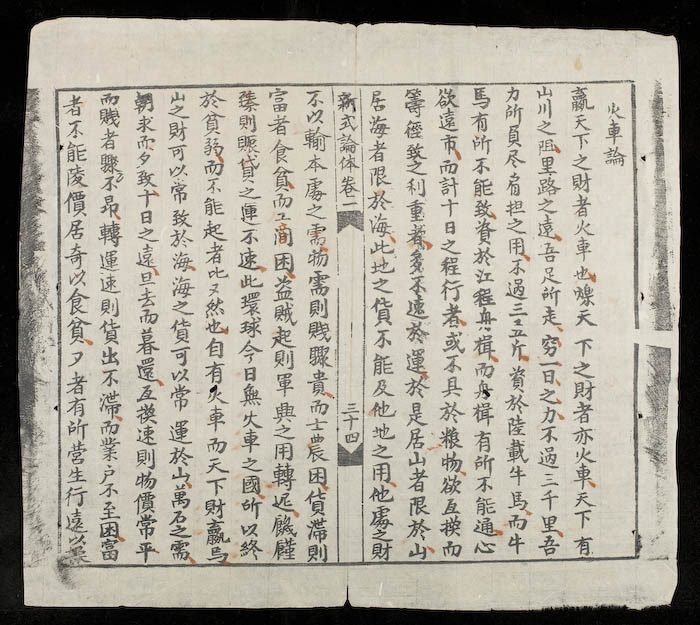 火車論
贏天下之財者火車也爍天下之財者亦火車天下有
山川之阻里路之遠吾足所走窮一日之力不過三千里吾
力所負尽肩担之用不過三五斤資於陸載牛馬而牛
馬有所不能致資於江程舟楫而舟楫有所不能通心
欲遠市而計十日之程行者或不具於粮物欲互換而
籌徑致之利重者多不速於運於是居山者限於山
居海者限於海此地之貨不能及他地之用他處之財
新式論体卷二
三十四
不以輸本處之需物需則賤驟貴而士農困貨滯則
富者食貧而工閒困盜賊起則軍興之用轉迟饑饉
臻則賑貸之運不速此環球今日無火車之國所以終
於貧弱而不能起者比々然也自有火車而天下財贏焉
山之財可以常致於海海之貨可以常運於山萬石之需
朝求而夕致十日之遠旦去而暮還互換速則物價常平
而賤者驟不昂轉運速則貨出不滯而業户不至困富
者不能陵價居奇以食貧力者有所营生行遠以